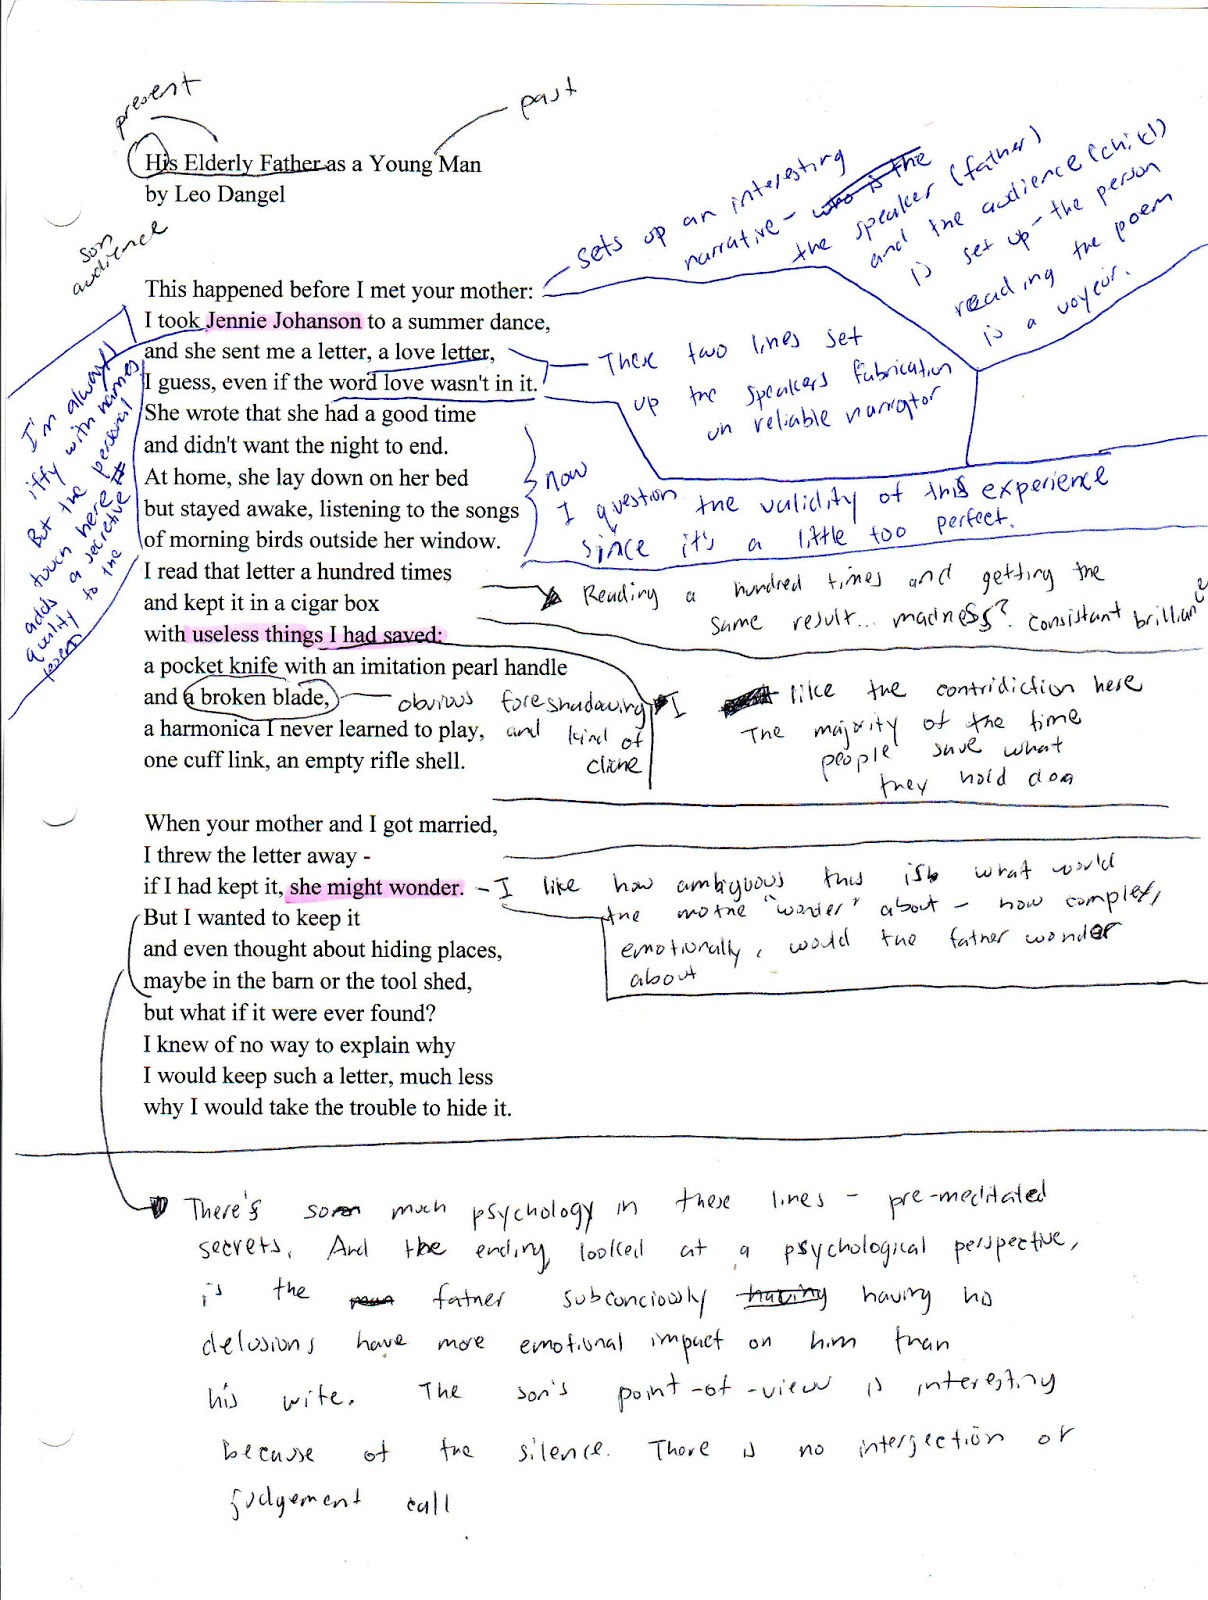 present
past
His Elderly Father as a Young Man
by Leo Dangel
son
audience
sets up an interesting
narrative - who is the
the speaker (father)
and the audience (child)
is set up - the person
reading the poem
is a voyeur.
This happened before I met your mother:
I took Jennie Johanson to a summer dance,
and she sent me a letter, a love letter,
I guess, even if the word love wasn't in it.
She wrote that she had a good time
and didn't want the night to end.
At home, she lay down on her bed
but stayed awake, listening to the songs
of morning birds outside her window.
I read that letter a hundred times
and kept it in a cigar box
with useless things I had saved:
a pocket knife with an imitation pearl handle
and a broken blade,
a harmonica I never learned to play,
one cuff link, an empty rifle shell.
I'm always
iffy with names
But the personal
touch here
adds a secretive
quality to the
poem
These two lines set
up the speakers fabrication
un reliable narrator
now
I question the validity of this experience
since it's a little too perfect.
Reading a hundred times and getting the
same result... madness? consistant brilliance
obvious foreshadowing
and kind of
cliche
I like the contridiction here
The majority of the time
people save what
they hold dea
When your mother and I got married,
I threw the letter away -
if I had kept it, she might wonder.
But I wanted to keep it
and even thought about hiding places,
maybe in the barn or the tool shed,
but what if it were ever found?
I knew of no way to explain why
I would keep such a letter, much less
why I would take the trouble to hide it.
- I like how ambiguous this is what would
the mothe "wonder" about - how complex,
emotionally, would the father wonder
about
There's so much psychology in these lines - pre-meditated
secrets. And the ending, looked at a psychological perspective,
is the father subconciously having having no
delusions have more emotional impact on him than
his wife. The son's point-of-view is interesting
because of the silence. There is no interjection or
judgement call